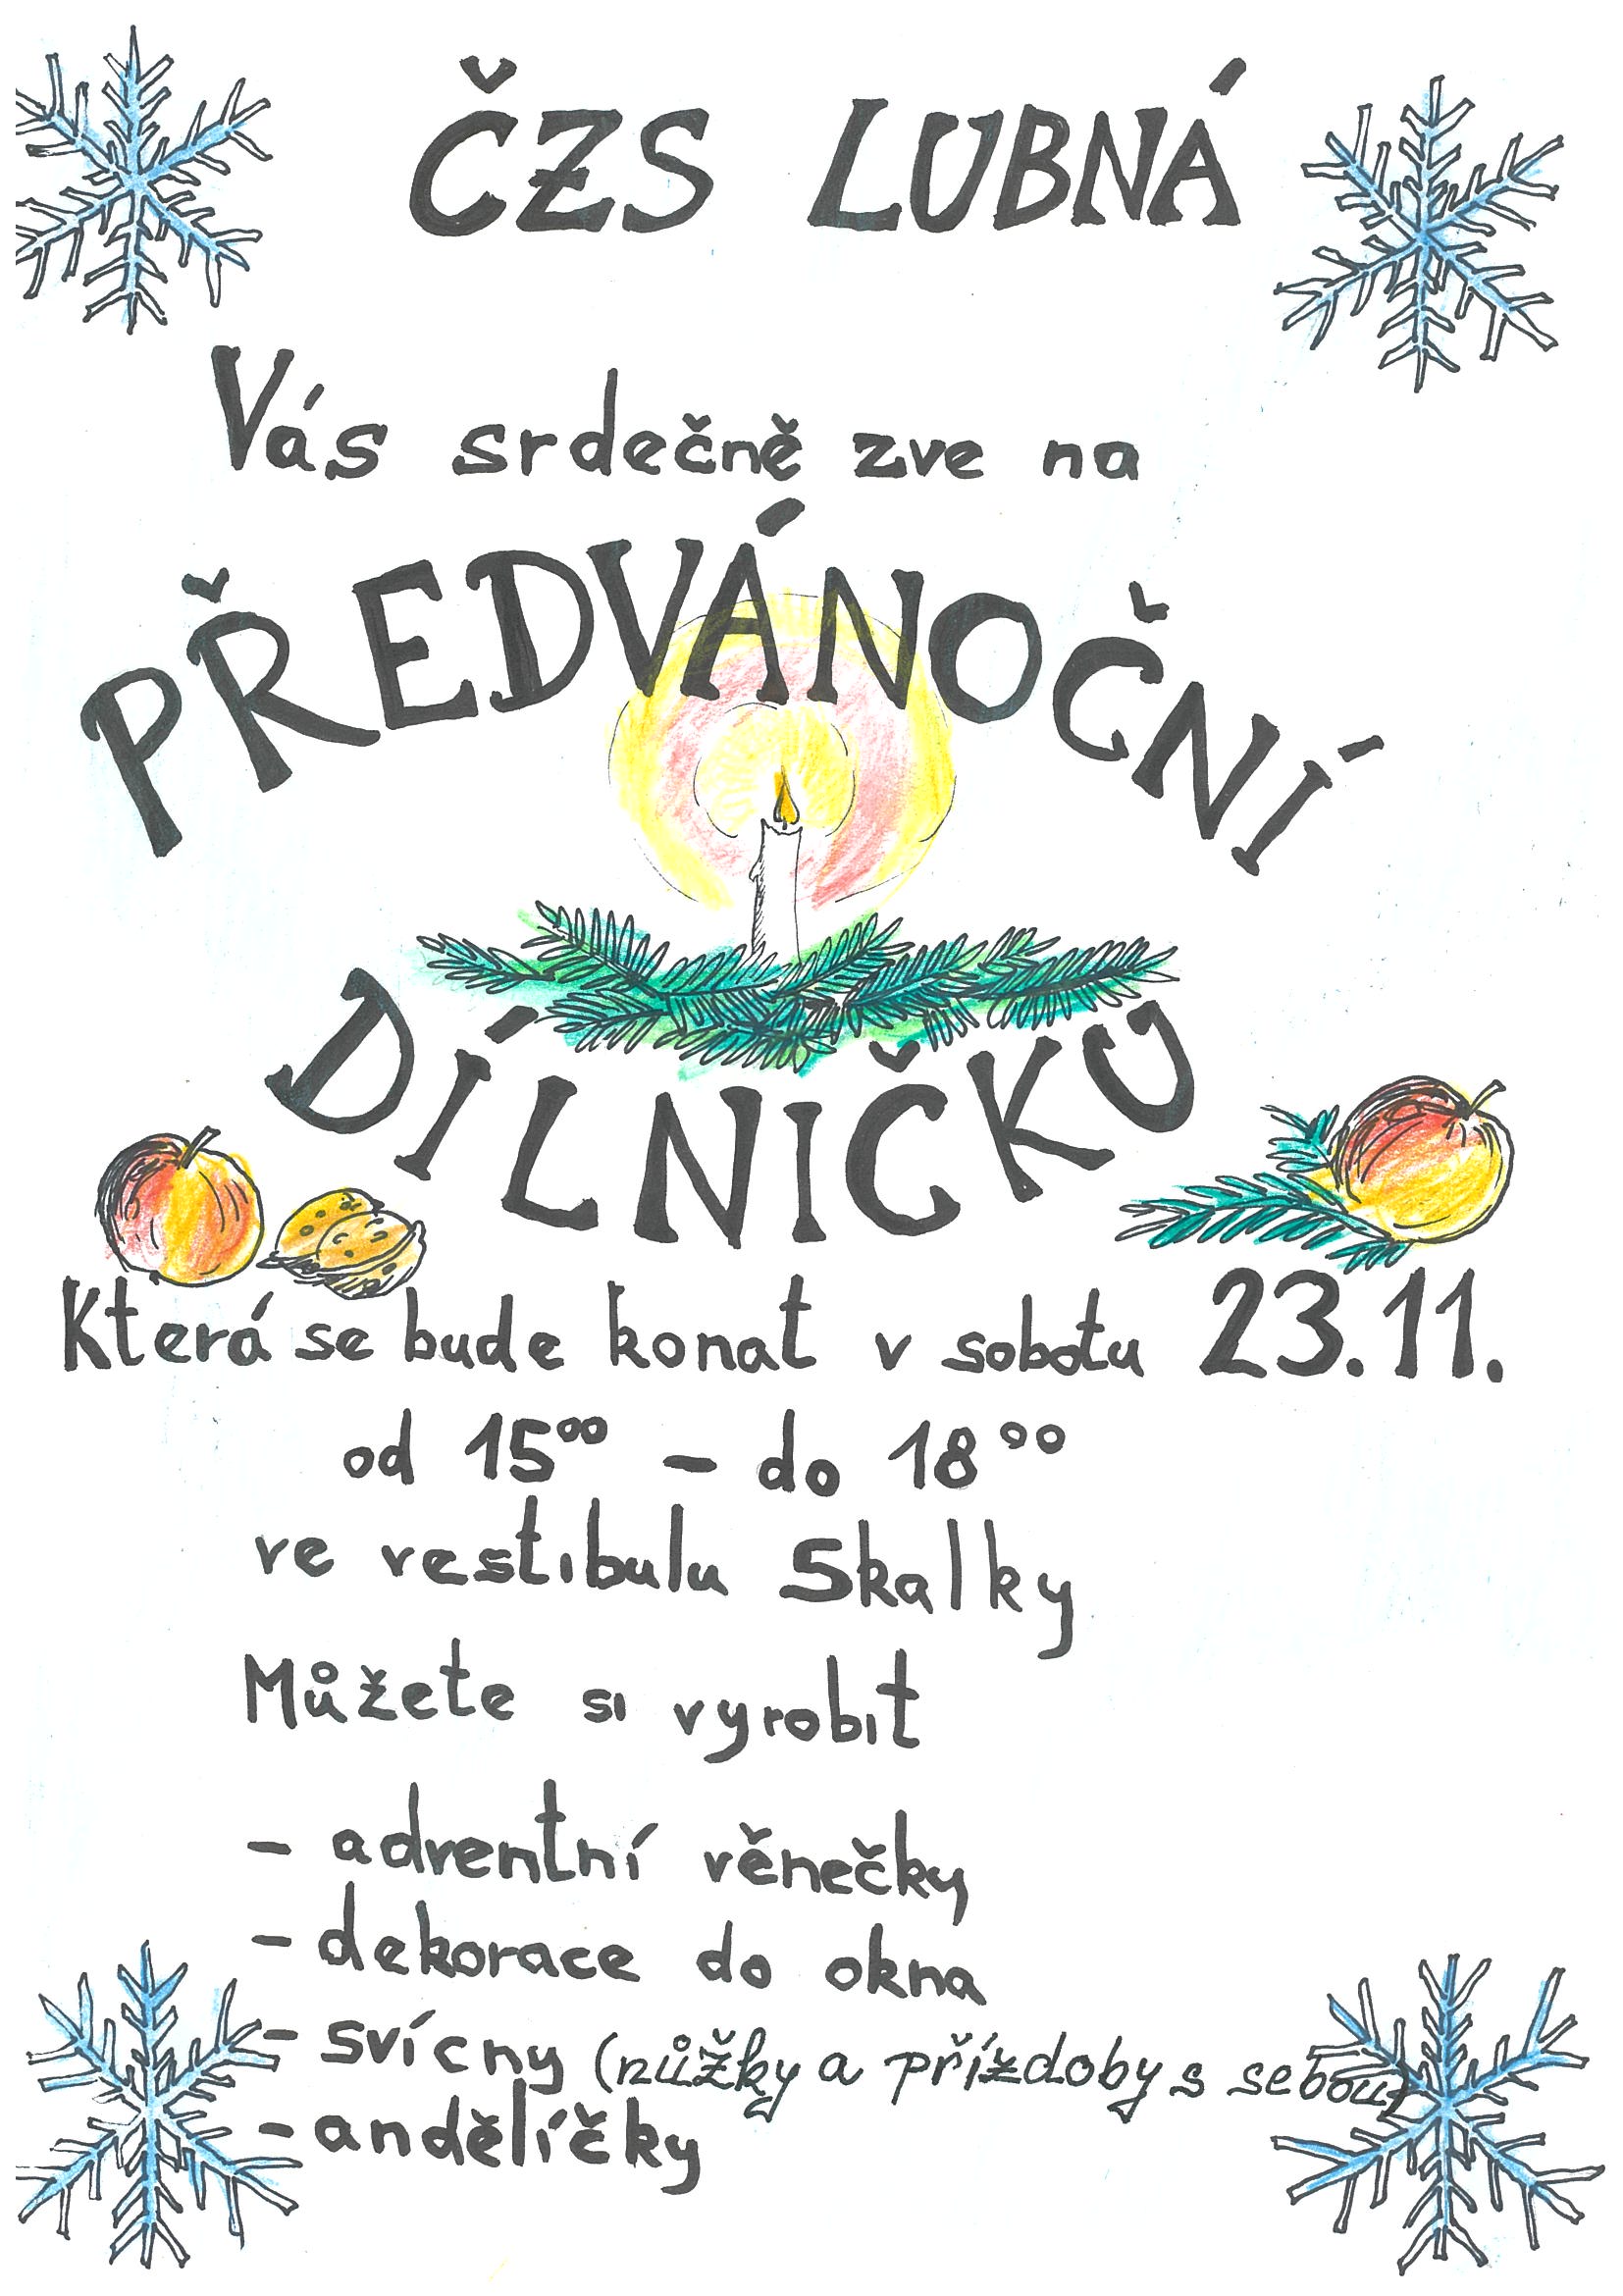 ČZS LUBNÁ
Vás srdečně zve na
PŘEDVÁNOČNÍ
DÍLNIČKU
Která se bude konat v sobotu 23.11.
od 15⁰⁰ - do 18⁰⁰
ve vestibulu Skalky
Můžete si vyrobit
- adventní věnečky
- dekorace do okna
- svícny (nůžky a přízdoby s sebou)
- andělíčky